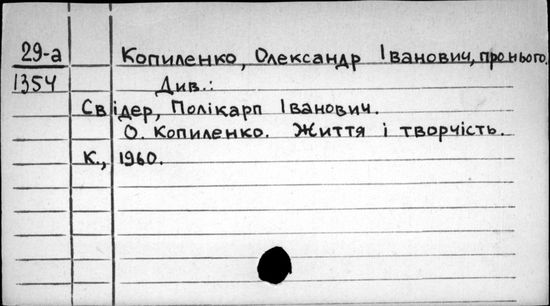 29-а Копиленко, Олександр Іванович, про нього.
1354 Див.:
Свідер, Полікарп Іванович.
О. Копиленко. Життя і творчість.
К., 1960.